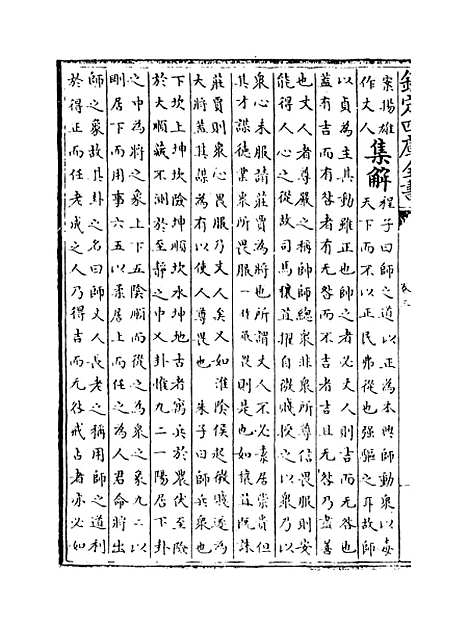 欽定四庫全書
案揚雄
作丈人
集解
程子曰師之道以正為本興師動衆以毒
天下而不以正民弗從也强驅之耳故師
以貞為主其動雖正也帥之者必丈人則吉而无咎也
蓋有吉而有咎者有无咎而不吉者吉且无咎乃盡善
也丈人者尊嚴之稱帥師總衆非衆所尊信畏服則安
能得人心之從故司馬穰苴擢自微賤授之以衆乃以
衆心未服請莊賈為將也所謂丈人不必素居崇貴但
其才謀德業衆所畏服則是也穰苴既誅
莊賈則衆心畏服乃丈人矣又如淮陰侯起於微賤遂為
大將蓋其謀為有以使人尊畏也 朱子曰師兵衆也
下坎上坤坎險坤順坎水坤地古者寓兵於農伏至險
於大順藏不測於至靜之中又卦惟九二一陽居下卦
之中為將之象上下五陰順而從之為衆之象九二以
剛居下而用事六五以柔居上而任之為人君命將出
師之象故其卦之名曰師丈人長老之稱用師之道利
於得正而任老成之人乃得吉而无咎戒占者亦必如